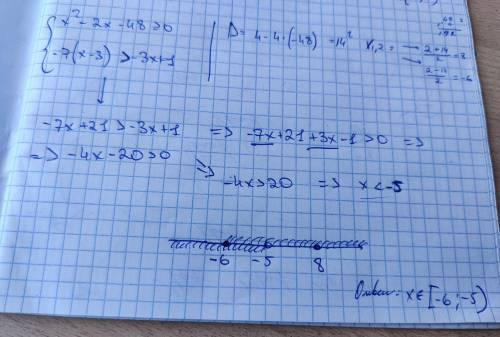 x² - 2x - 48 ≥ 0
-7(x-3) > -3x+1
D = 4 - 4·(-48) = 14²
x₁,₂ =
(2+14)/2 = 8
(2-14)/2 = -6
-7x+21 > -3x+1 => -7x+21+3x-1 > 0 =>
=> -4x-20 > 0
-4x > 20 => x < -5
-6 -5 8
Ответ: x ∈ [-6; -5)